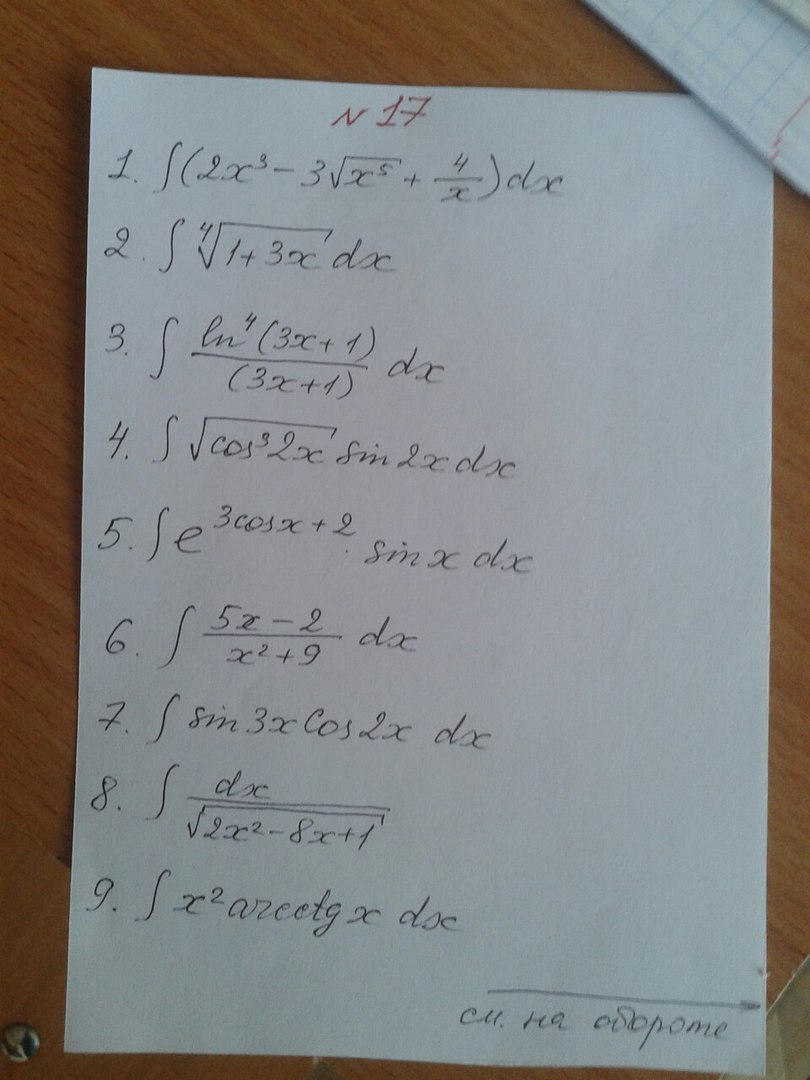 N 17
1. ∫(2x³ − 3√x⁵ + 4/x)dx
2. ∫ ⁴√(1+3x) dx
3. ∫ ln⁴(3x+1)/(3x+1) dx
4. ∫ √(cos³2x) sin 2x dx
5. ∫ e^(3cosx+2) · sin x dx
6. ∫ (5x−2)/(x²+9) dx
7. ∫ sin 3x Cos 2x dx
8. ∫ dx/√(2x²−8x+1)
9. ∫ x² arcctg x dx
см. на обороте